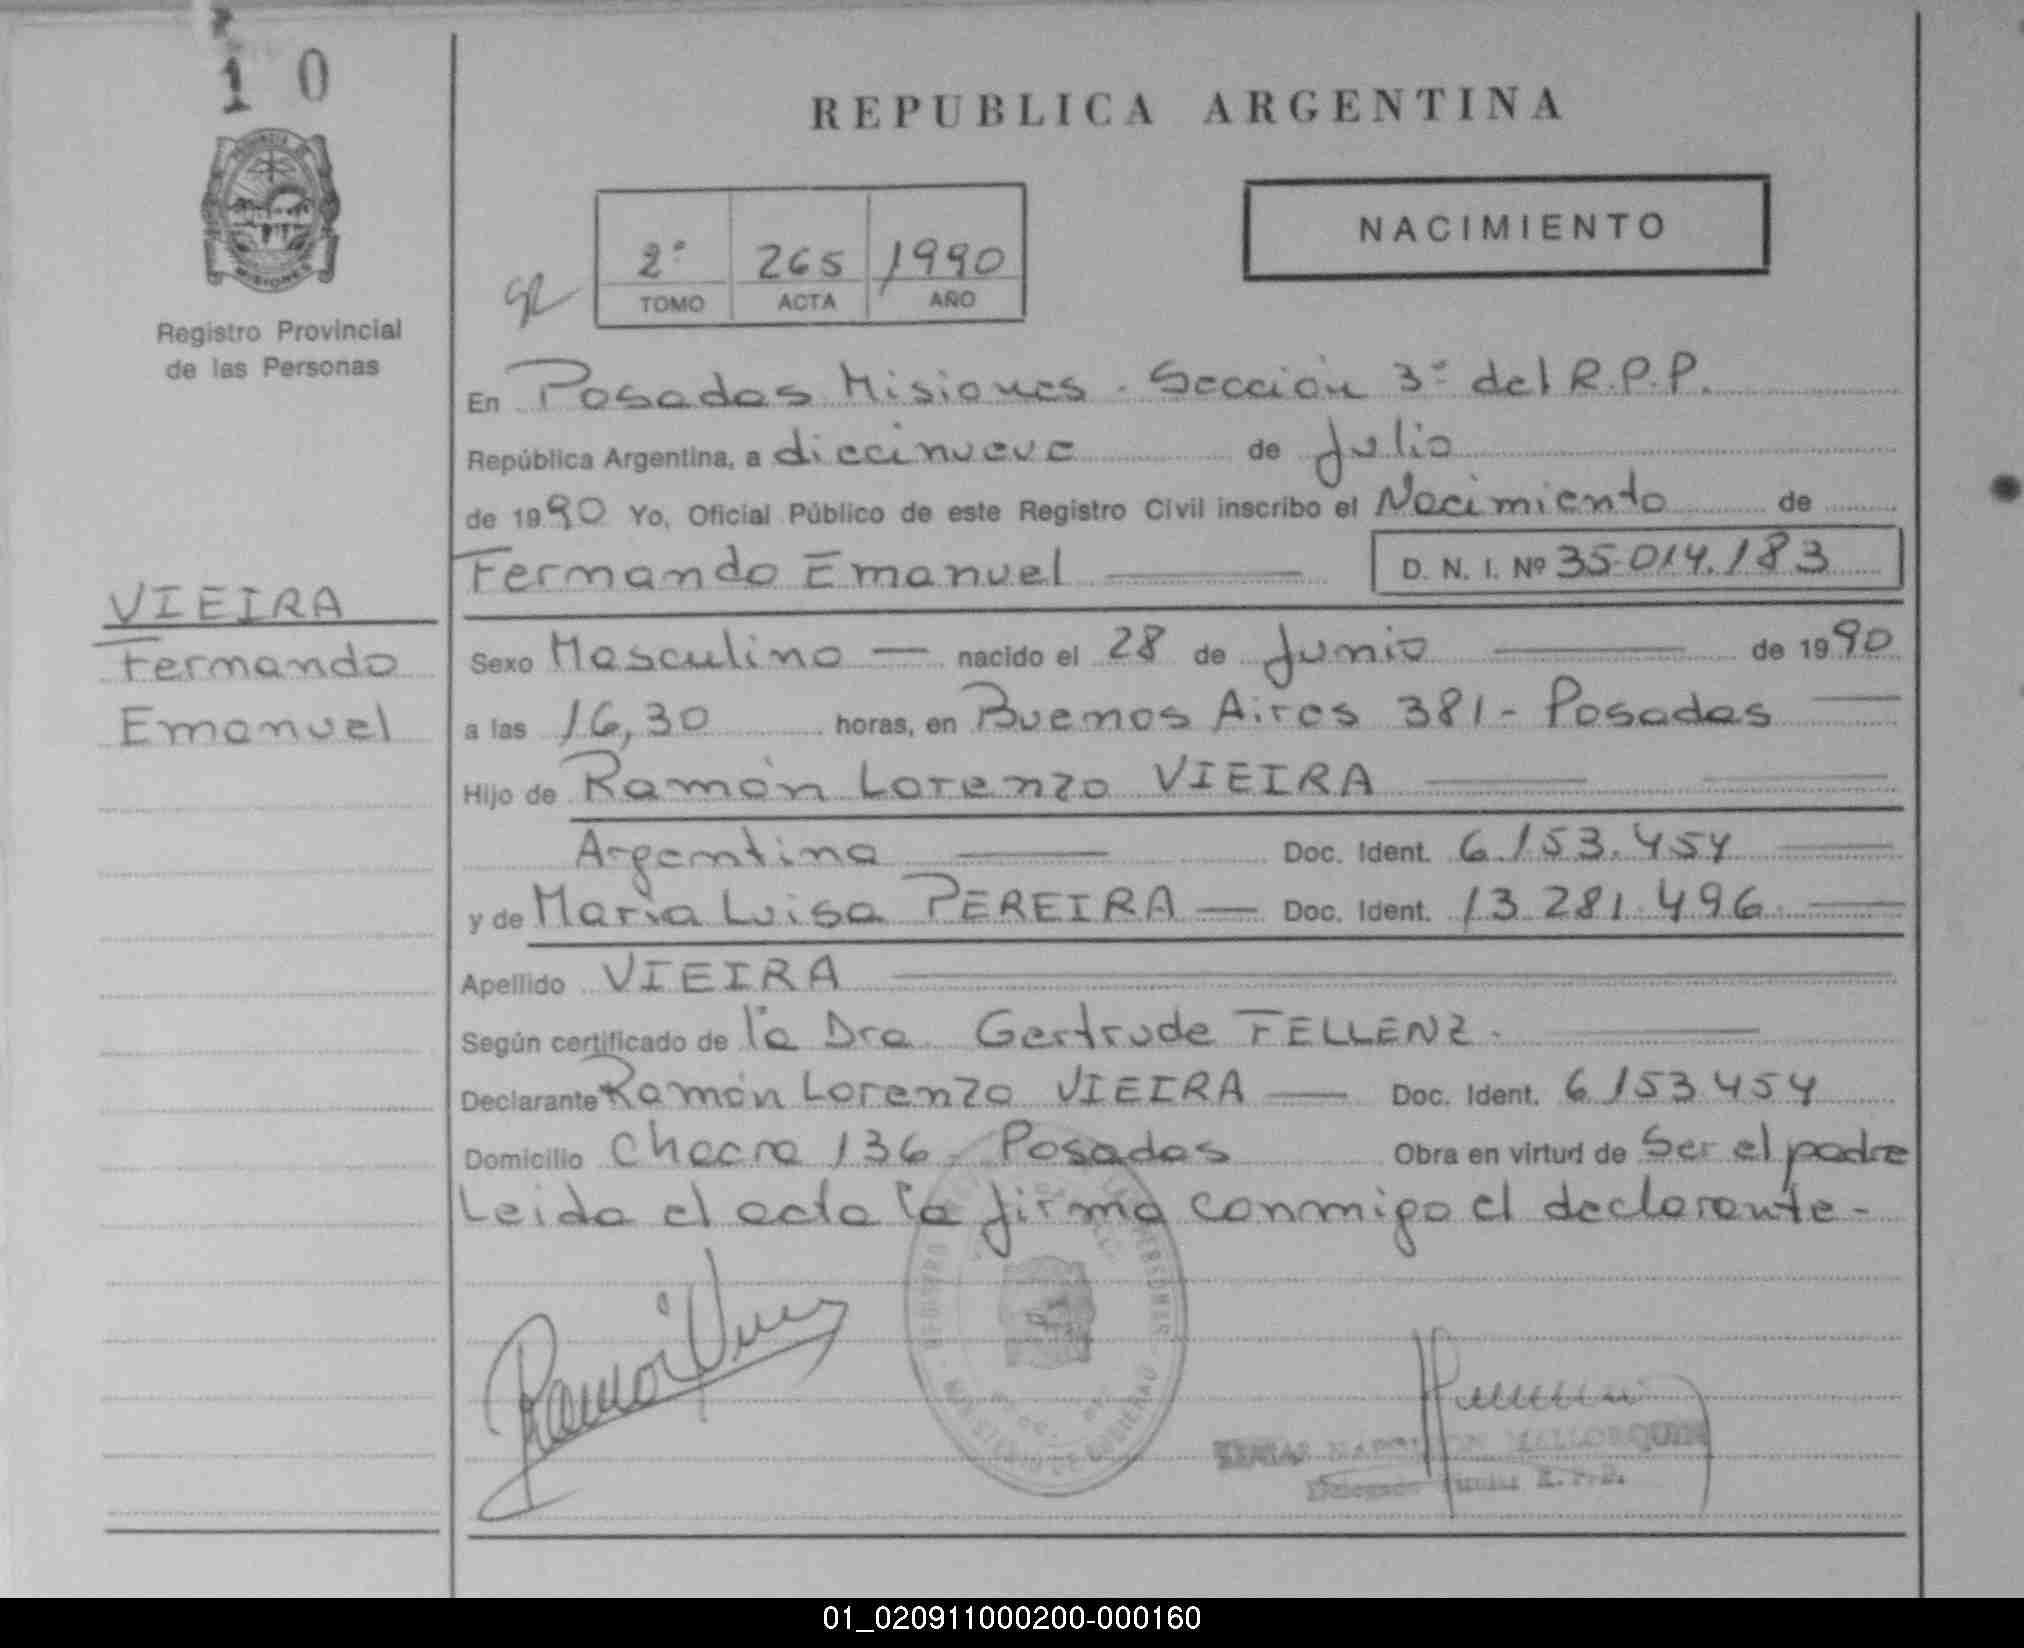 1 0
REPUBLICA ARGENTINA
NACIMIENTO
2° 265 1990
TOMO ACTA AÑO
MISIONES
Registro Provincial
de las Personas
En Posadas Misiones. Sección 3° del R.P.P.
República Argentina, a diecinueve de Julio
de 1990 Yo, Oficial Público de este Registro Civil inscribo el Nacimiento de
Fernando Emanuel D. N. I. Nº 35.014.183
VIEIRA
Fernando
Emanuel
Sexo Masculino — nacido el 28 de Junio — de 1990
a las 16,30 horas, en Buenos Aires 381 - Posadas —
Hijo de Ramón Lorenzo VIEIRA —
Argentina — Doc. Ident. 6.153.454 —
y de María Luisa PEREIRA — Doc. Ident. 13.281.496. —
Apellido VIEIRA —
Según certificado de la Dra Gertrude FELLENZ. —
Declarante Ramón Lorenzo VIEIRA — Doc. Ident. 6.153.454
Domicilio Chacra 136. Posadas Obra en virtud de Ser el padre
Leida el acta la firma conmigo el declarante -
MALLORQUIN
Delegado Titular R.P.P.
01_020911000200-000160